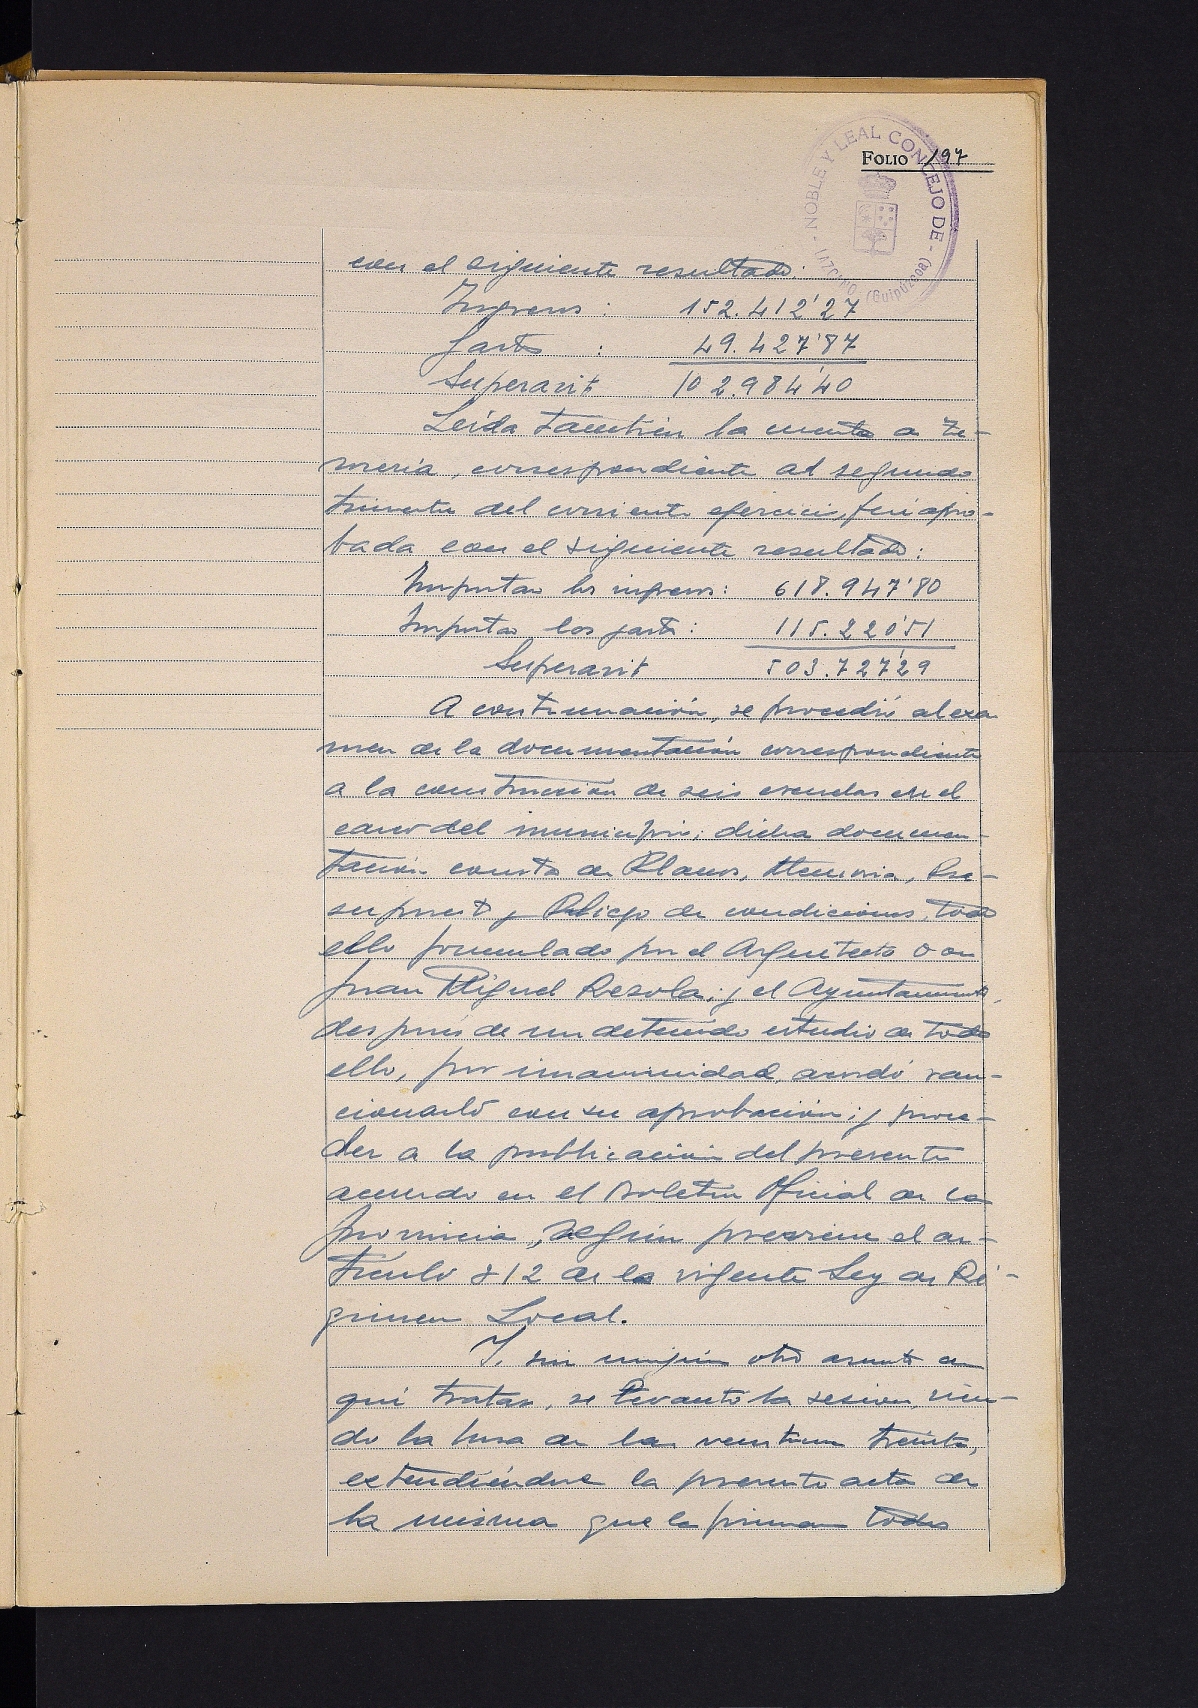 FOLIO 197
- NOBLE Y LEAL CONCEJO DE -
LAZCANO (Guipúzcoa)
con el siguiente resultado:
Ingresos : 152.412'27
Gastos : 49.427'87
Superavit 102.984'40
Leída también la cuenta de te-
sorería, correspondiente al segundo
trimestre del corriente ejercicio, fué apro-
bada con el siguiente resultado:
Importan los ingresos: 618.947'80
Importan los gastos: 115.220'51
Superavit 503.727'29
A continuación, se procedió al exa
men de la documentación correspondiente
a la construcción de seis escuelas en el
casco del municipio; dicha documen-
tación consta de Planos, Memoria, Pre-
supuesto y Pliego de condiciones, todo
ello formulado por el Arquitecto Don
Juan Miguel Resola; y el Ayuntamiento,
después de un detenido estudio de todo
ello, por unanimidad, acordó san-
cionarlo con su aprobación; y proce-
der a la publicación del presente
acuerdo en el Boletín Oficial de la
provincia, según previene el ar-
tículo 312 de la vigente Ley de Ré-
gimen Local.
Y, sin ningún otro asunto de
qué tratar, se levantó la sesión, sien-
do la hora de las veintiuna treinta,
extendiéndose la presente acta de
la misma que la firman todos